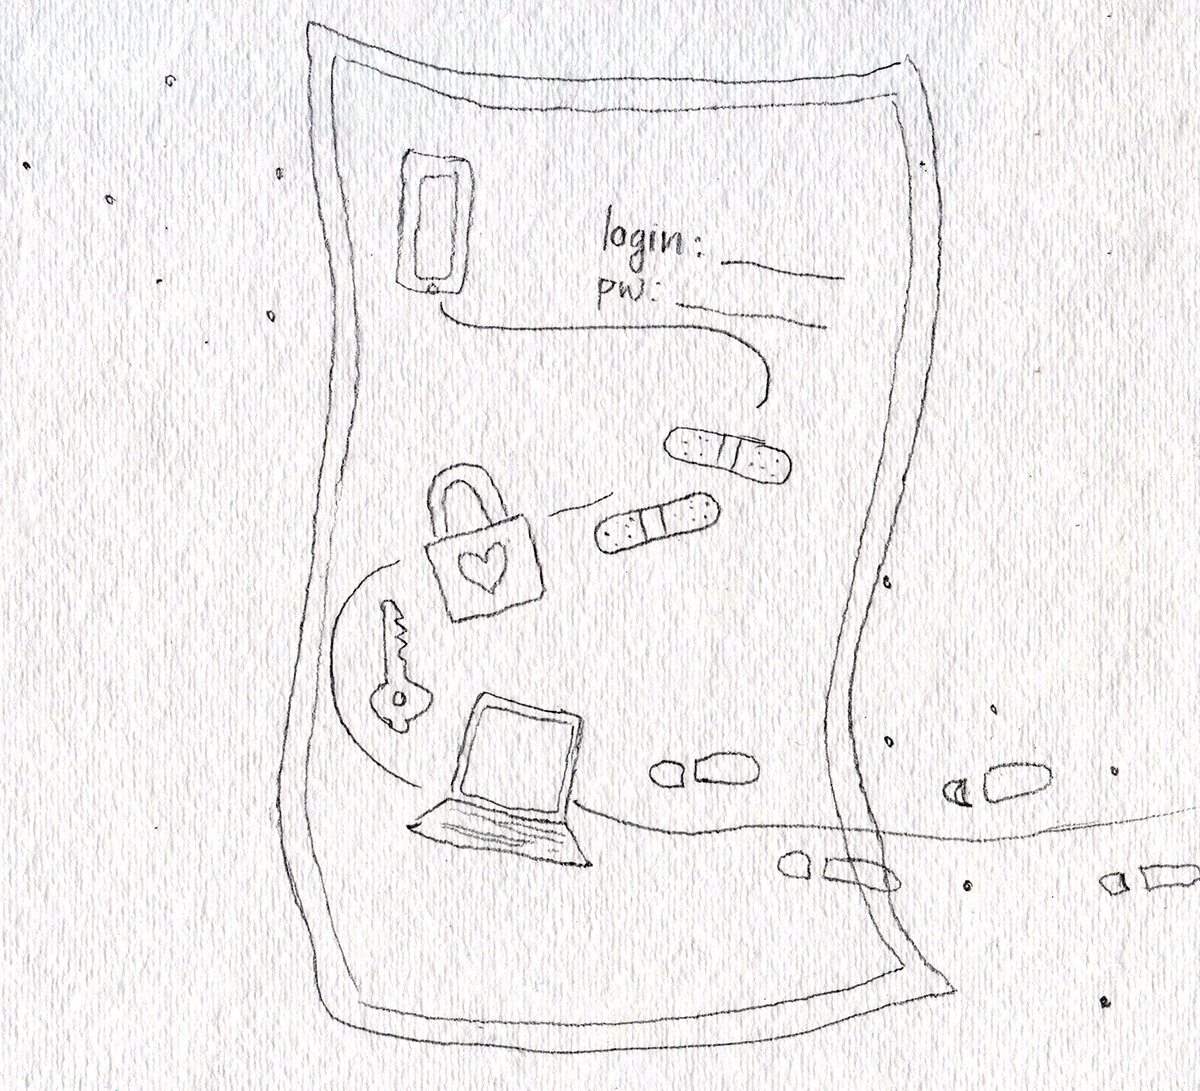 login: ________
pw: ________